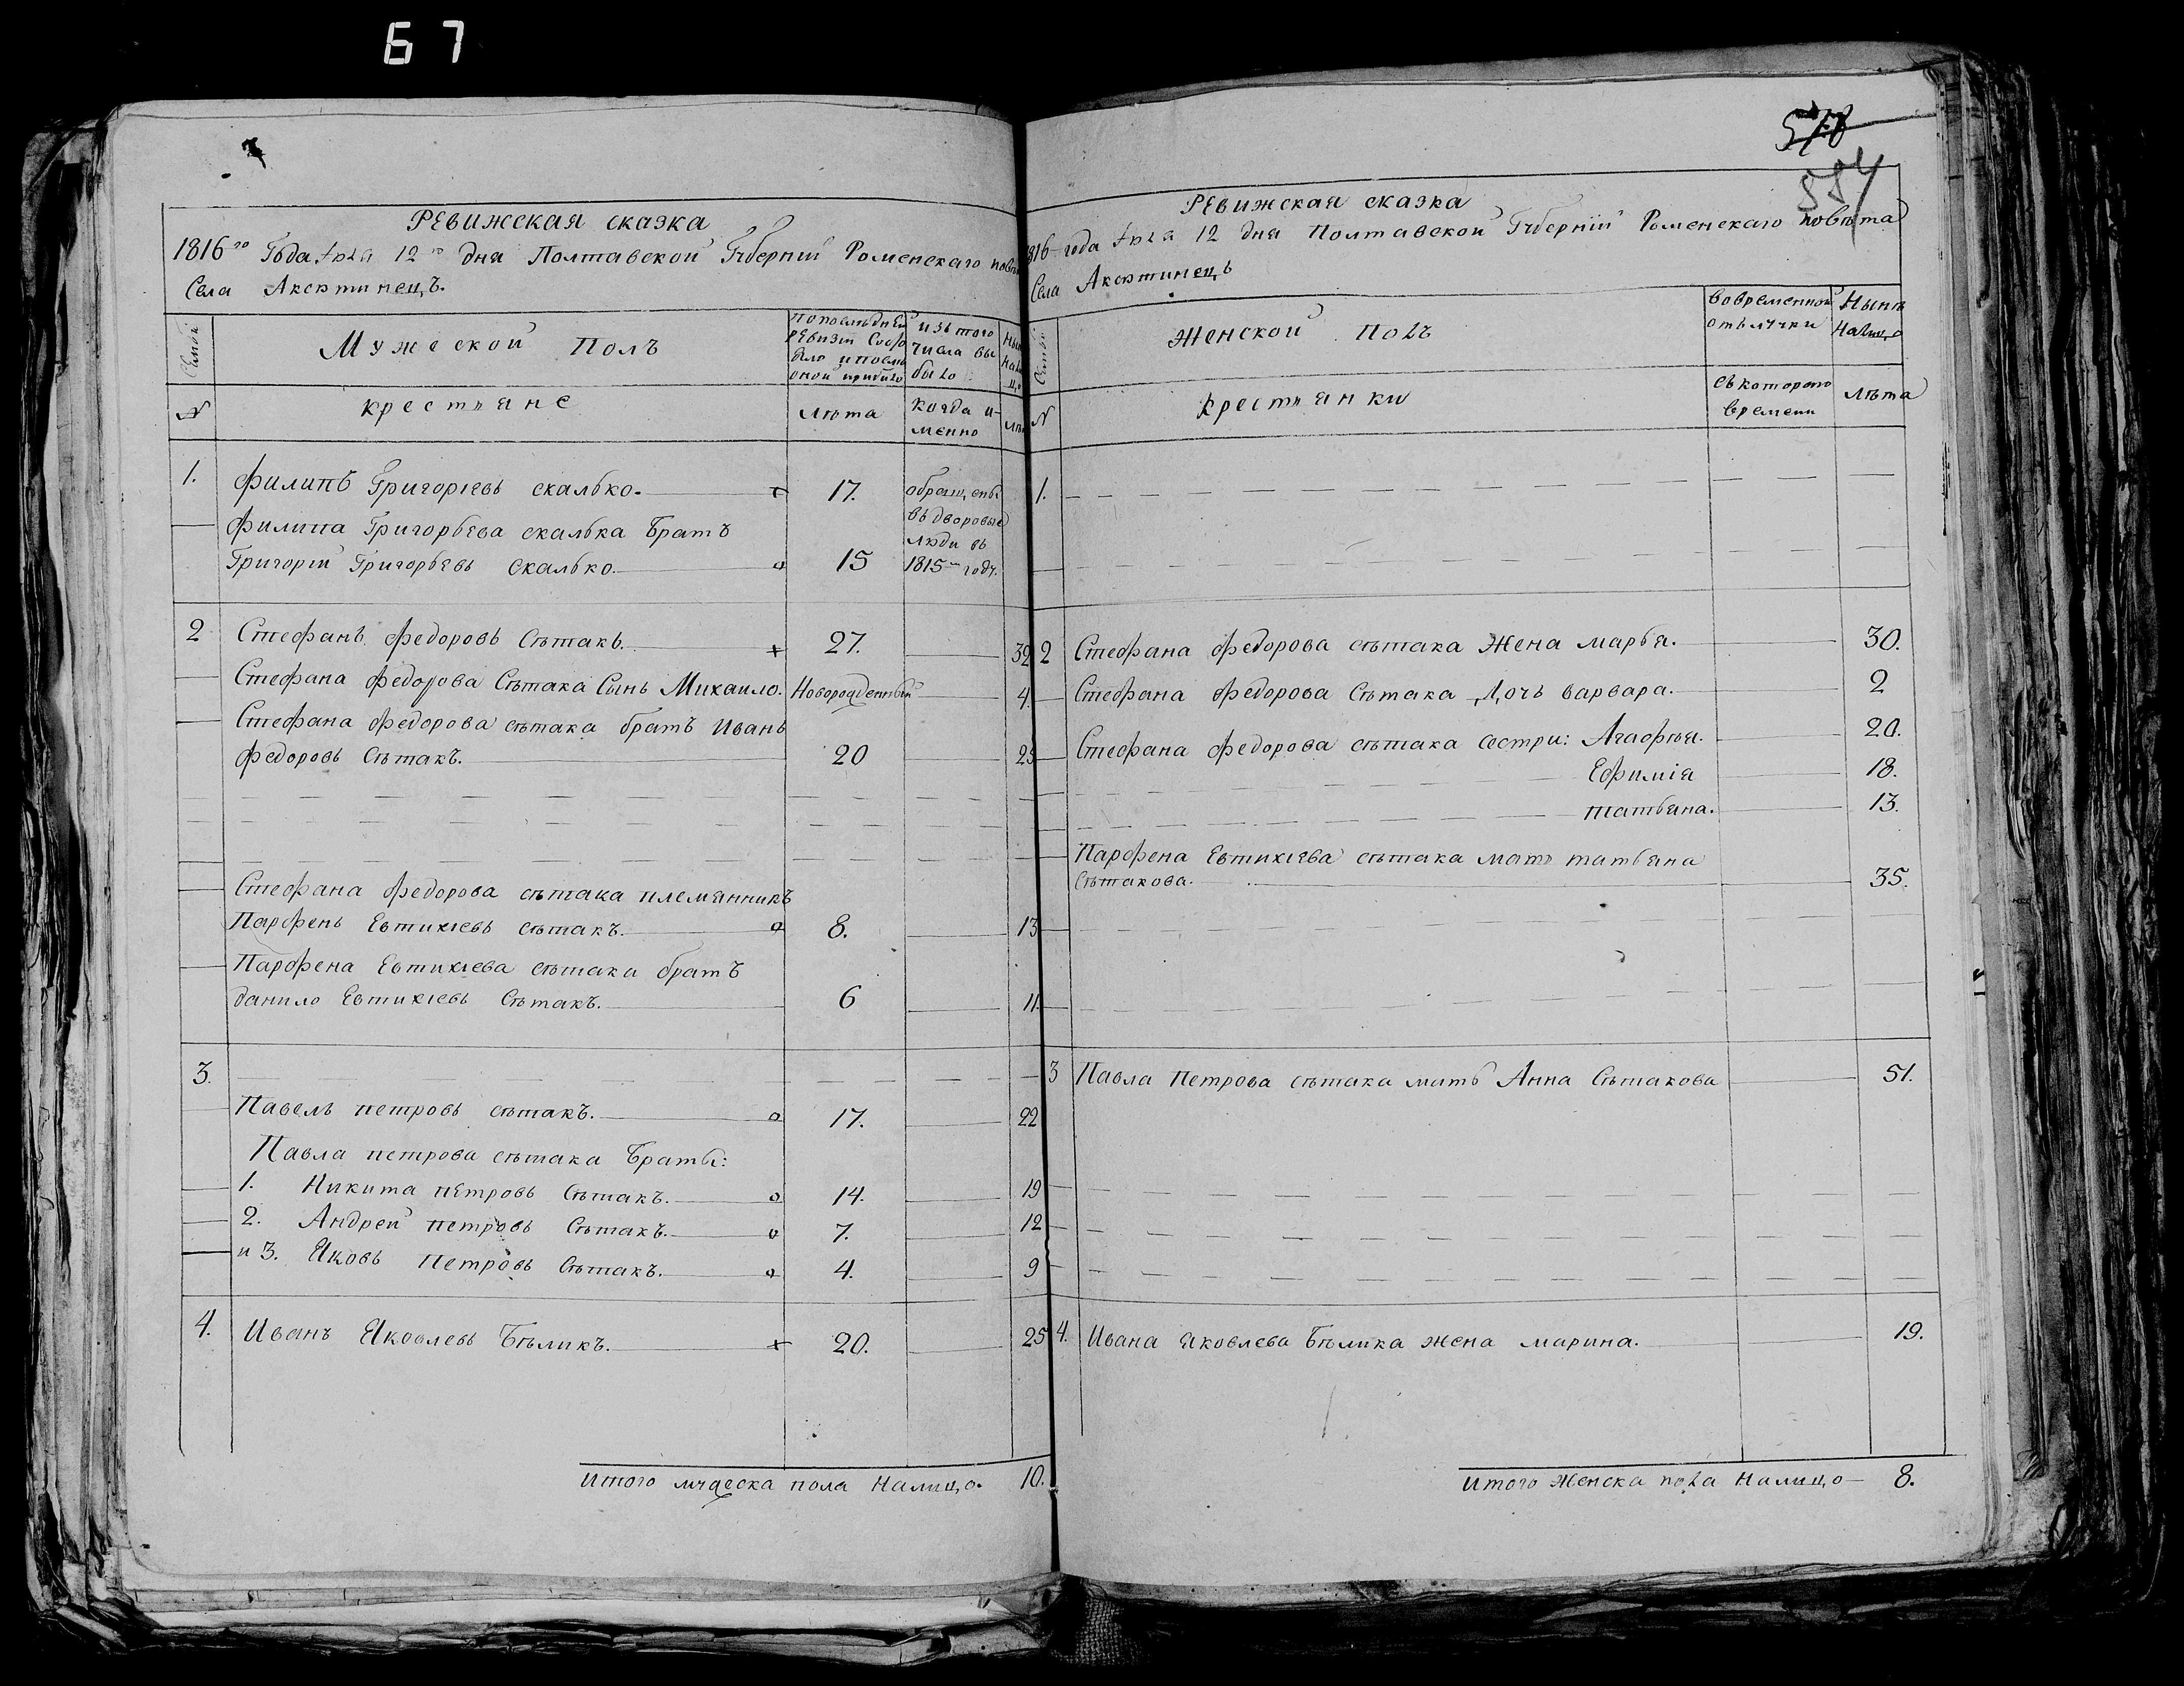 67
578
584
Ревижская сказка
1816го Года Іюля 12го дня Полтавской Губерніи Роменскаго пов
Села Аксютинецъ.
Семьи
Мужеской Полъ
По последней ревизіи состояло и после оной прибыло
изъ того числа выбыло
Нын налицо
№
крестяне
лѣта
когда именно
лѣт
1. Филипъ Григоріевъ скалько. 17. обращены
Филипа Григорьева скалька Братъ въ дворовые люди въ
Григорій Григорьевъ Скалько. 15 1815м году.
2 Стефанъ Федоровъ Сѣтакъ. 27. 32
Стефана Федорова Сѣтака Сынъ Михаило. Новорожденный 4.
Стефана Федорова сѣтака братъ Иванъ
Федоровъ Сѣтакъ. 20 25
Стефана Федорова сѣтака племянникъ
Парфенъ Евтихіевъ сѣтакъ. 8. 13
Парфена Евтихіева сѣтака братъ
данило Евтихіевъ Сѣтакъ. 6 11.
3.
Павелъ петровъ сѣтакъ. 17. 22
Павла петрова сѣтака Браты:
1. Никита петровъ Сѣтакъ. 14. 19
2. Андрей петровъ Сѣтакъ. 7. 12
и 3. Яковъ Петровъ Сѣтакъ. 4. 9
4. Иванъ Яковлевъ Бѣликъ. 20. 25
Итого мужеска пола Налицо. 10.
Ревижская сказка
1816 года Іюля 12 дня Полтавской Губерніи Роменскаго повѣта
Села Аксютинецъ
Семьи
Женской Полъ
во временной отълучки
Нынѣ налицо
№
Крестянки
съ котораго времени
лѣта
1.
2 Стефана Федорова сѣтака Жена марья. 30.
Стефана Федорова Сѣтака Дочъ варвара. 2
Стефана Федорова сѣтака сестри: Агафія. 20.
Ефимія 18.
татьяна. 13.
Парфена Евтихіева сѣтака мать татьяна
Сѣтакова. 35.
3 Павла Петрова сѣтака мать Анна Сѣтакова 51.
4. Ивана Яковлева Бѣлика жена марина. 19.
Итого Женска пола Налицо 8.